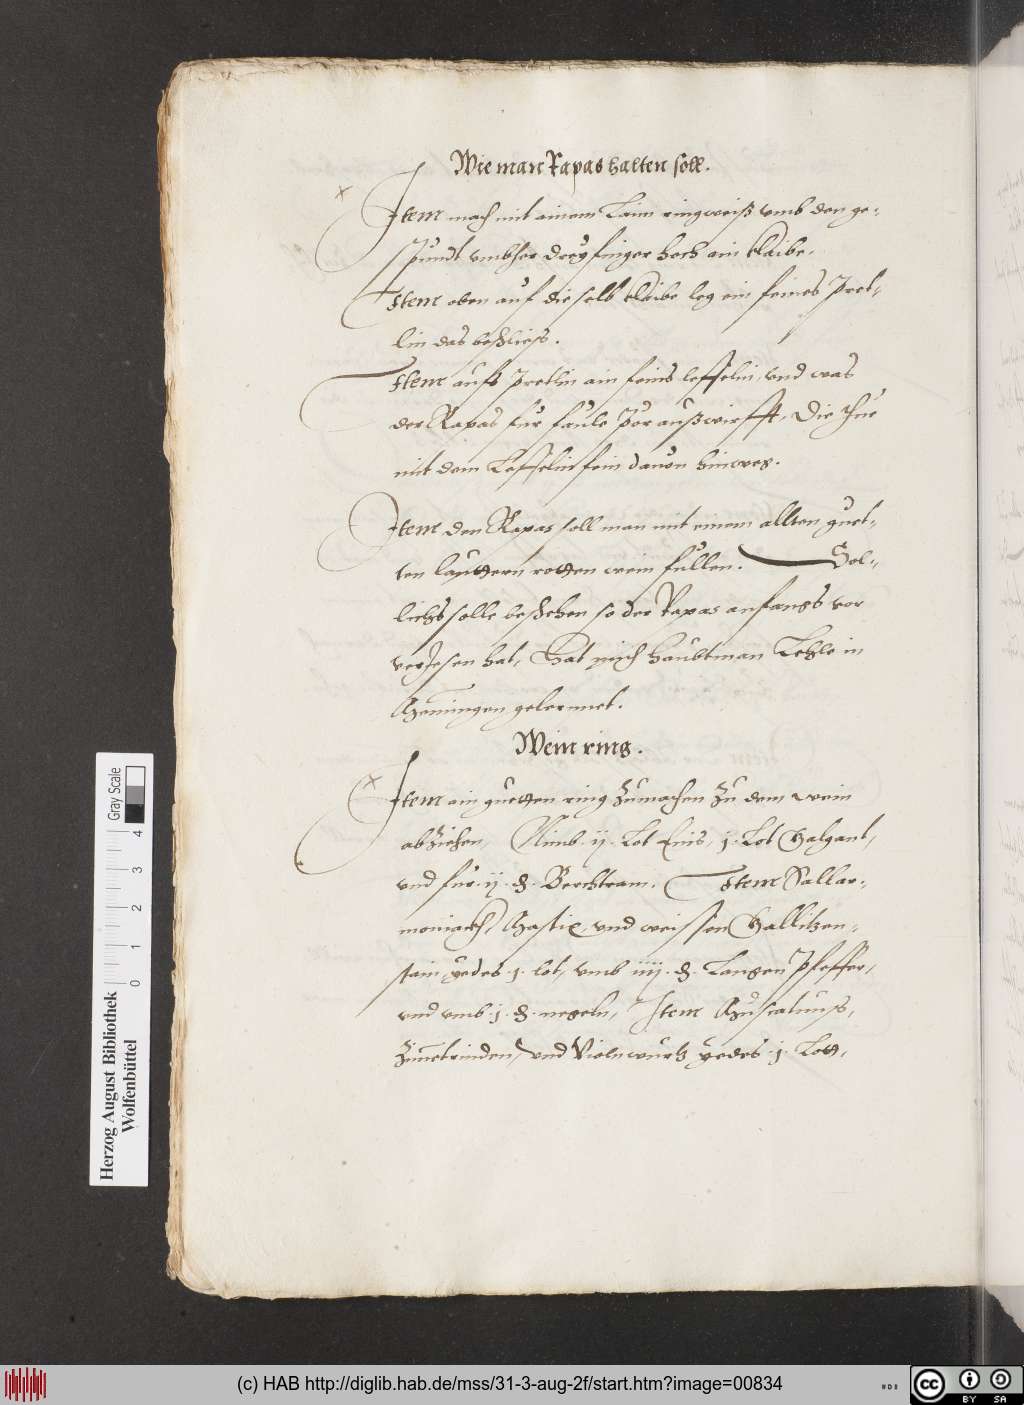 Wie man Rapas halten soll.
Item mach mit ainem Laim ringweiß vmb den ge-
spundt vmbher dreyfinger hoch ain klaibe.
Item oben auf dieselb klaibe leg ein feines Pret-
lin das beschliess.
Item aufs pretlin ain feins leffelin, vnd was
der Rapas fur faule außwirfft, die thue
mit dem Leffelin fein dauon hinweg.
Item den Rapas soll man mit einem allten guet-
ten lauttern rotten wein fullen. Sol-
lichs solle beschehen so der Rapas anfangs vor
verjesen hat, Hat mich haubtman in
gelernnet.
Wein ring.
Item ain guetten ring zumachen zu dem wein
abziehen, Nimb ij. Lot Enis, j. Lot Galgant,
vnd fur ij. d. Berchtram. Item Sallar-
moniack, Mastix, vnd weissen Gallitzen-
stain, yedes .j. lot, vmb iiij. d. Langen Pfeffer,
vnd vmb .j. d. negeln, Item Muscatnuss,
Zimetrinden, vnd Violnwurtz yedes .j. Lott,
Herzog August Bibliothek
Wolfenbüttel
Gray Scale
0 1 2 3 4
(c) HAB http://diglib.hab.de/mss/31-3-aug-2f/start.htm?image=00834
cc BY SA